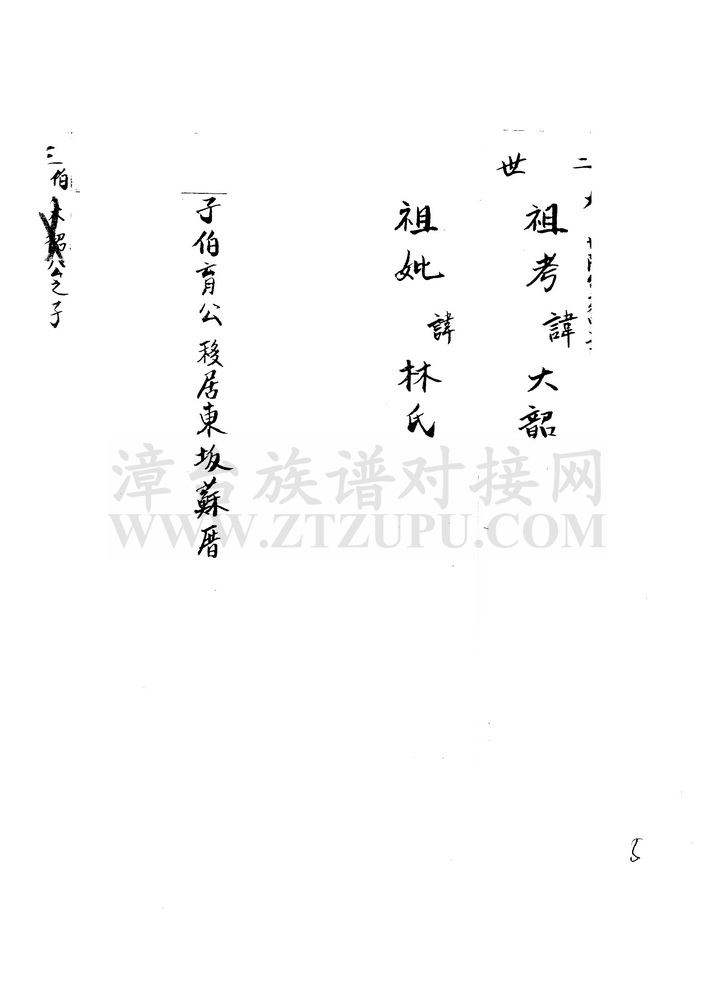 二
世
祖考諱大韶
祖妣諱林氏
子伯育公移居東坂蘇厝
三伯
公之子
漳台族谱对接网
WWW.ZTZUPU.COM
5